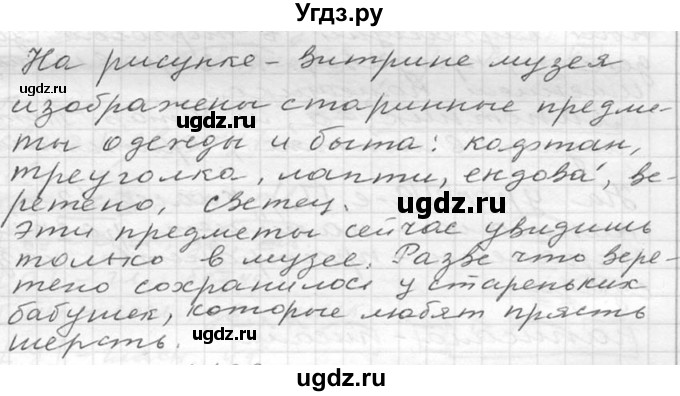 Угдз.ру
На рисунке - витрине музея
изображены старинные предме-
ты одежды и быта: кафтан,
треуголка, лапти, ендова́, ве-
ретено, светец.
Эти предметы сейчас увидишь
только в музее. Разве что вере-
тено сохранилось у стареньких
бабушек, которые любят прясть
шерсть.
ugdz.ru
ugdz.ru
ugdz.ru
ugdz.ru
ugdz.ru
ugdz.ru
ugdz.ru